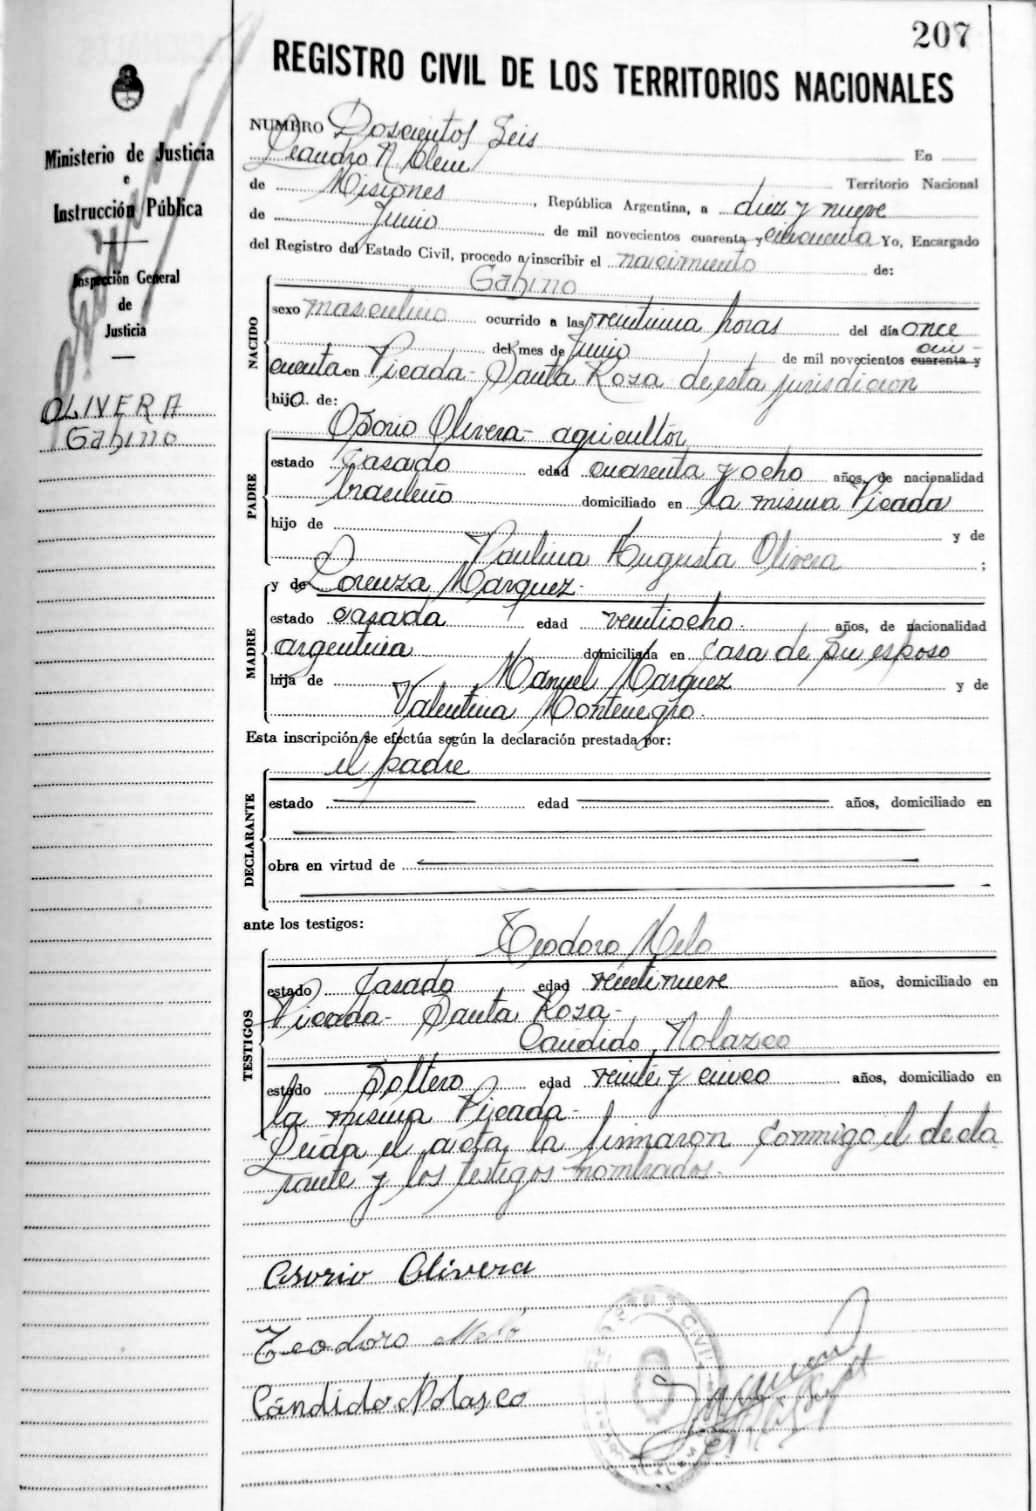 207
REGISTRO CIVIL DE LOS TERRITORIOS NACIONALES
Ministerio de Justicia
e
Instrucción Pública
Inspección General
de
Justicia
OLIVERA
Gabino
NUMERO Doscientos Seis
Leandro N Alem En
de Misiones Territorio Nacional
de Junio, República Argentina, a diez y nueve
de mil novecientos cuarenta y cincuenta Yo, Encargado
del Registro del Estado Civil, procedo a inscribir el nacimiento de:
Gabino
NACIDO
sexo masculino ocurrido a las veintiuna horas del día once
del mes de Junio de mil novecientos cuarenta y cin-
cuenta en Picada - Santa Roza de esta jurisdicion
hijo de:
PADRE
Osorio Olivera - agricultor
estado casado edad cuarenta y ocho años, de nacionalidad
brasileño domiciliado en la misma Picada
hijo de y de
Paulina Augusta Olivera ;
MADRE
y de Lorenza Marquez.
estado casada edad ventiocho. años, de nacionalidad
argentina domiciliada en casa de su esposo
hija de Manuel Marquez y de
Valentina Montenegro.
Esta inscripción se efectúa según la declaración prestada por:
el padre
DECLARANTE
estado edad años, domiciliado en
obra en virtud de
ante los testigos:
TESTIGOS
Teodoro Melo
estado casado edad veintinueve años, domiciliado en
Picada - Santa Roza -
Candido Nolazco
estado soltero edad veinte y cinco años, domiciliado en
la misma Picada -
Leida el acta la firmaron conmigo el decla
rante y los testigos nombrados.
Osorio Olivera
Teodoro Melo
Cándido Nolasco